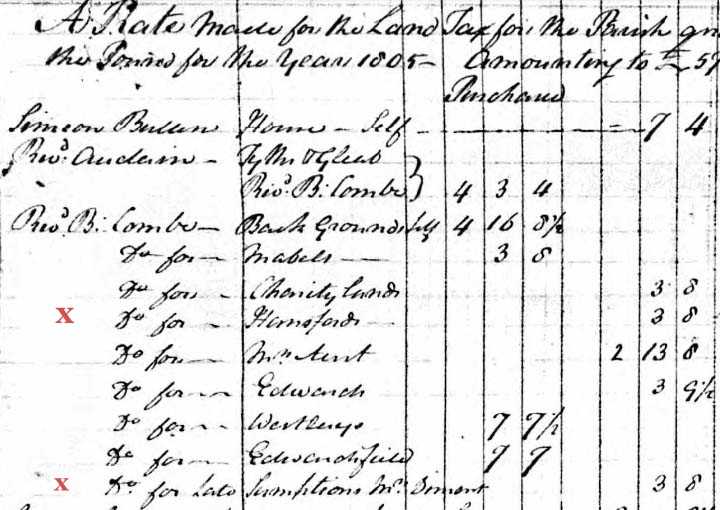 A Rate made for the Land Tax for the Parish
the Toined for the Year 1805 - Amounting to £ 57
Purchased
Simeon Bullen House - Self - 7 4
Revd. Audain - Tythe & Gleab
Revd. B: Combe } 4 3 4
Revd. B: Combe - Back Grounds self 4 16 8½
Do for - Mabels - 3 8
Do for - Charity lands 3 8
x Do for - Hansfords - 3 8
Do for - Mrs. 2 13 8
Do for - Edwards 3 9½
Do for - 7 7½
Do for - Edwardsfield 7 7
x Do. for Late Sumptions Mr. Diment 3 8